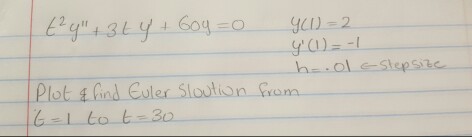 t²y'' + 3t y' + 60y = 0 y(1) = 2
y'(1) = -1
h = .01 ← stepsize
Plot & find Euler Sloution from
t = 1 to t = 30